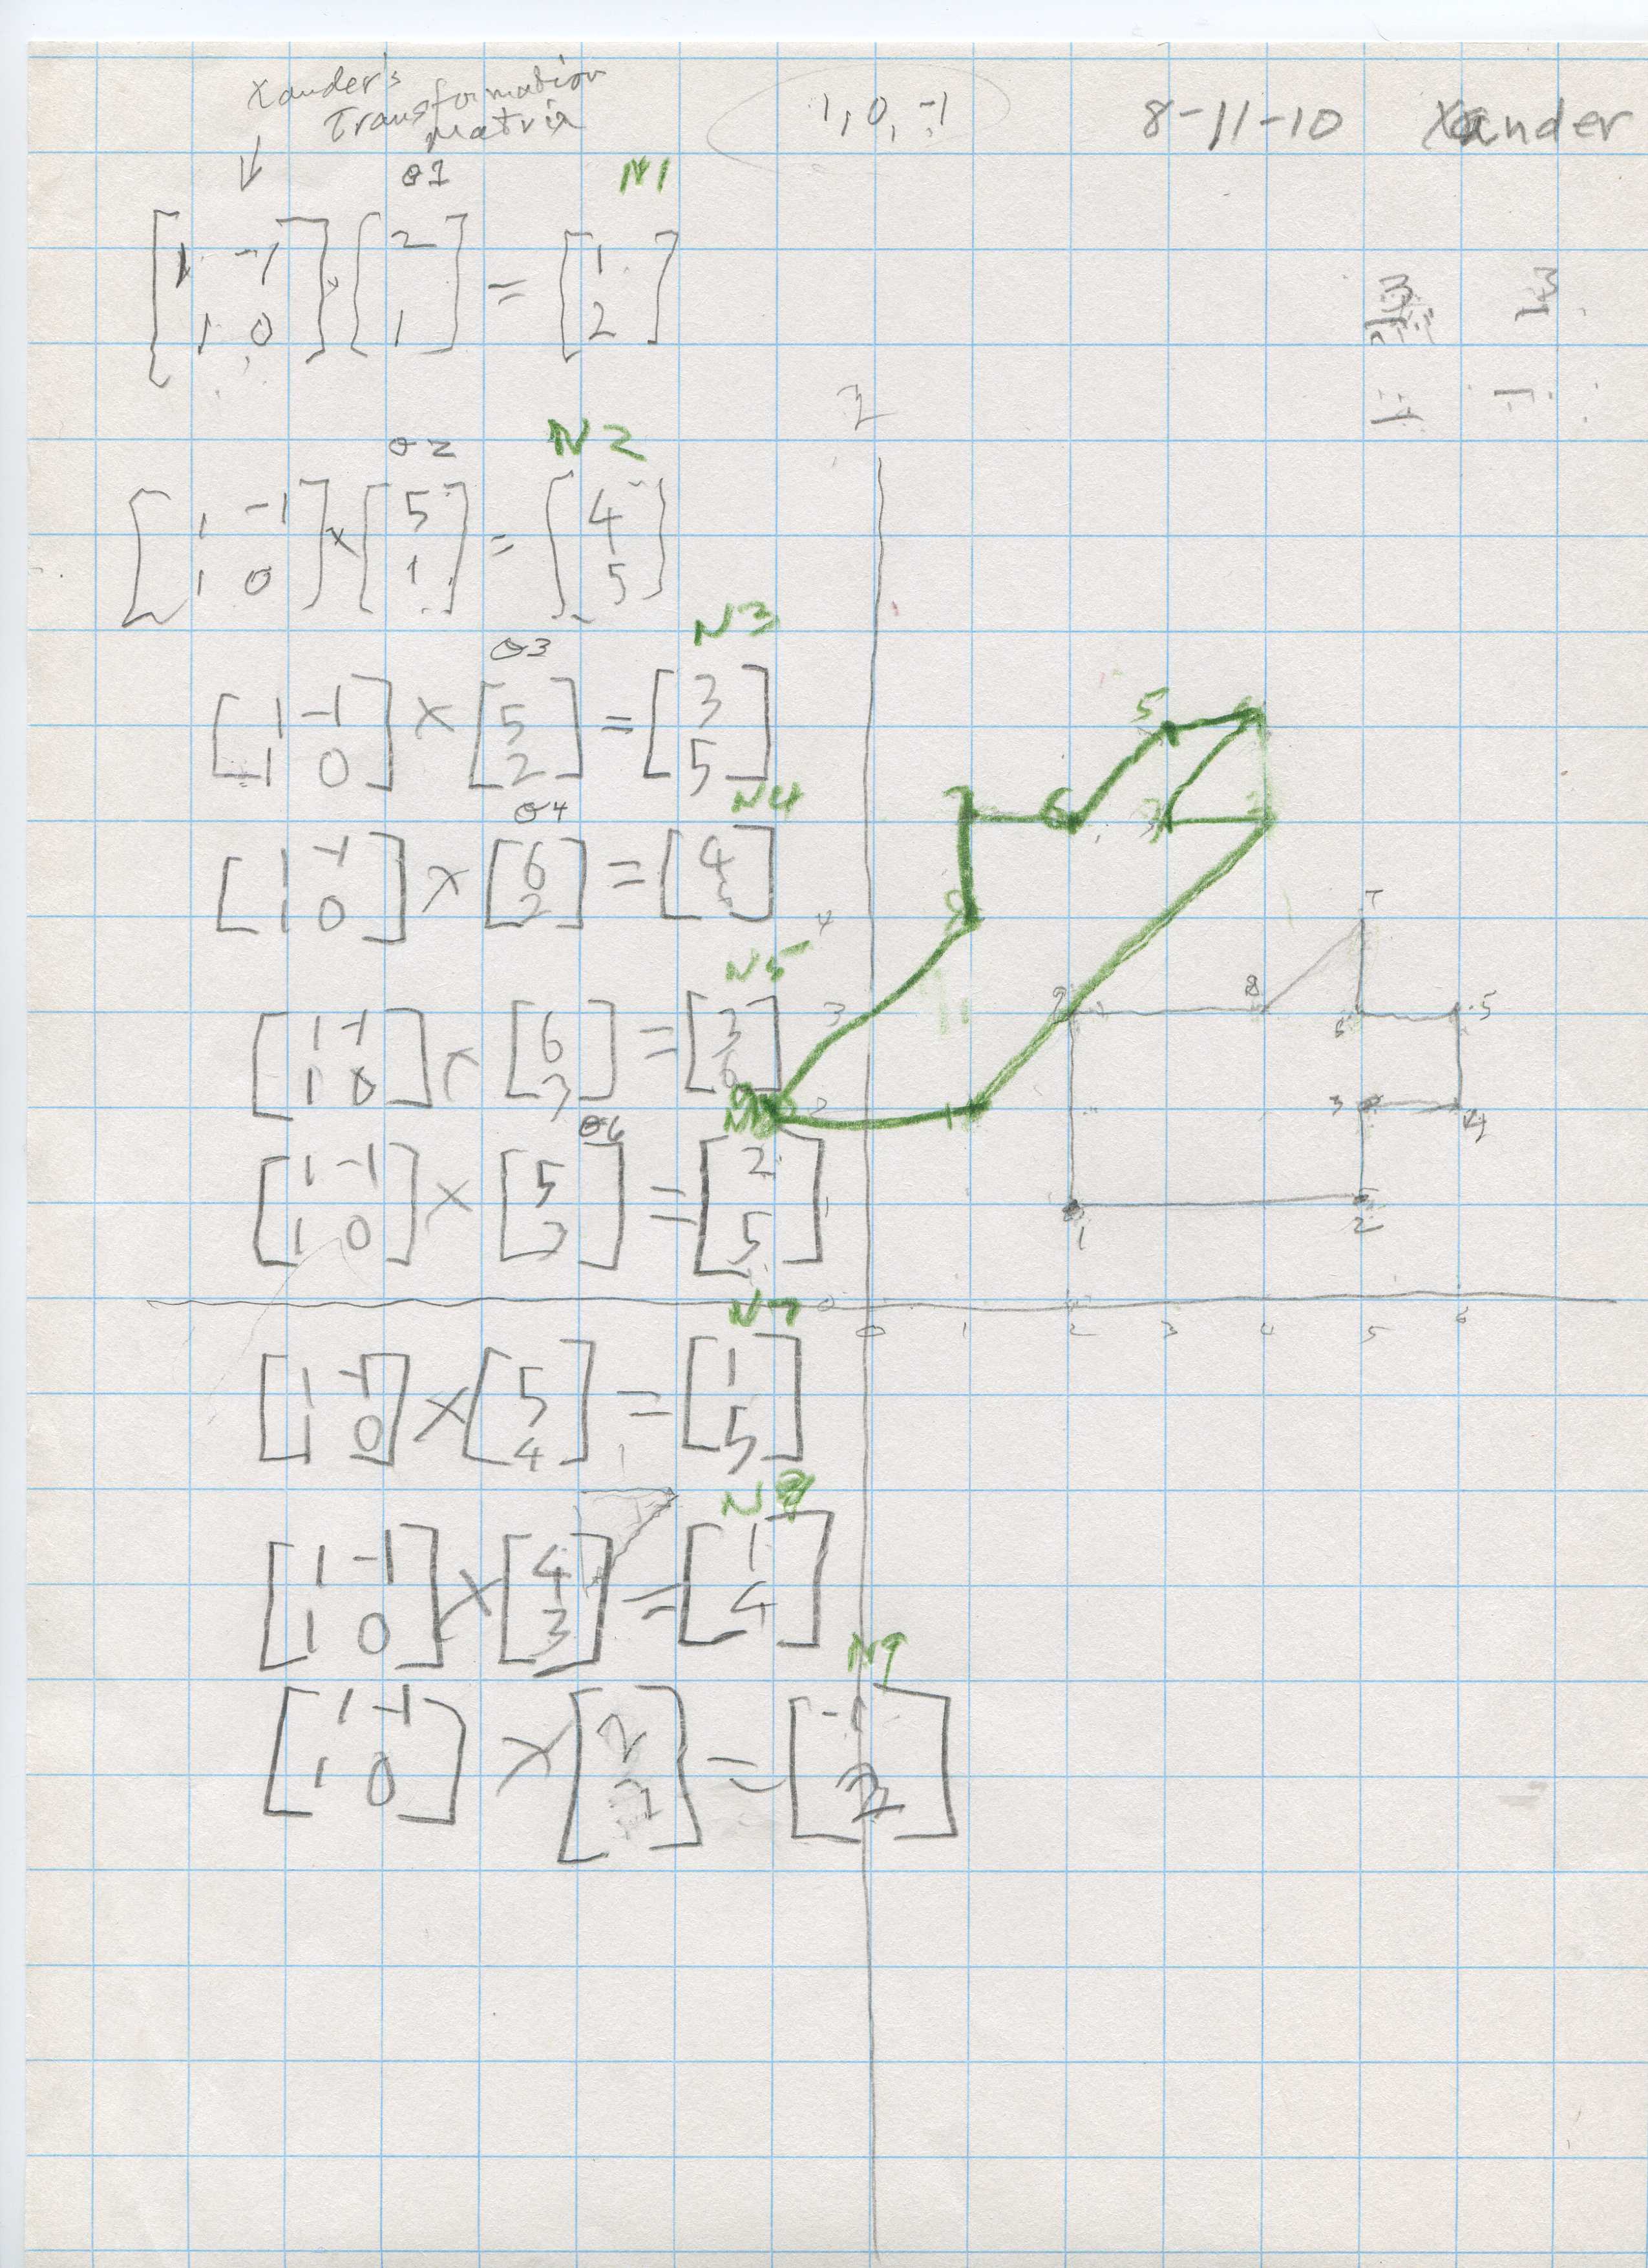 Xander's
Transformation
matrix
1, 0, -1
8-11-10 Xander
O1 N1
[1 -1 1 0] · [2 1] = [1 2]
O2 N2
[1 -1 1 0] × [5 1] = [4 5]
O3 N3
[1 -1 1 0] × [5 2] = [3 5]
O4 N4
[1 -1 1 0] × [6 2] = [4 6]
N5
[1 -1 1 0] × [6 3] = [3 6]
O6
[1 -1 1 0] × [5 3] = [2 5]
N7
[1 -1 1 0] × [5 4] = [1 5]
N8
[1 -1 1 0] × [4 3] = [1 4]
N9
[1 -1 1 0] × [2 3] = [-1 2]
5
7 6 3
4
3
2
1
0
0 1 2 3 4 5 6
7
8 6 5
3 4
1 2
1